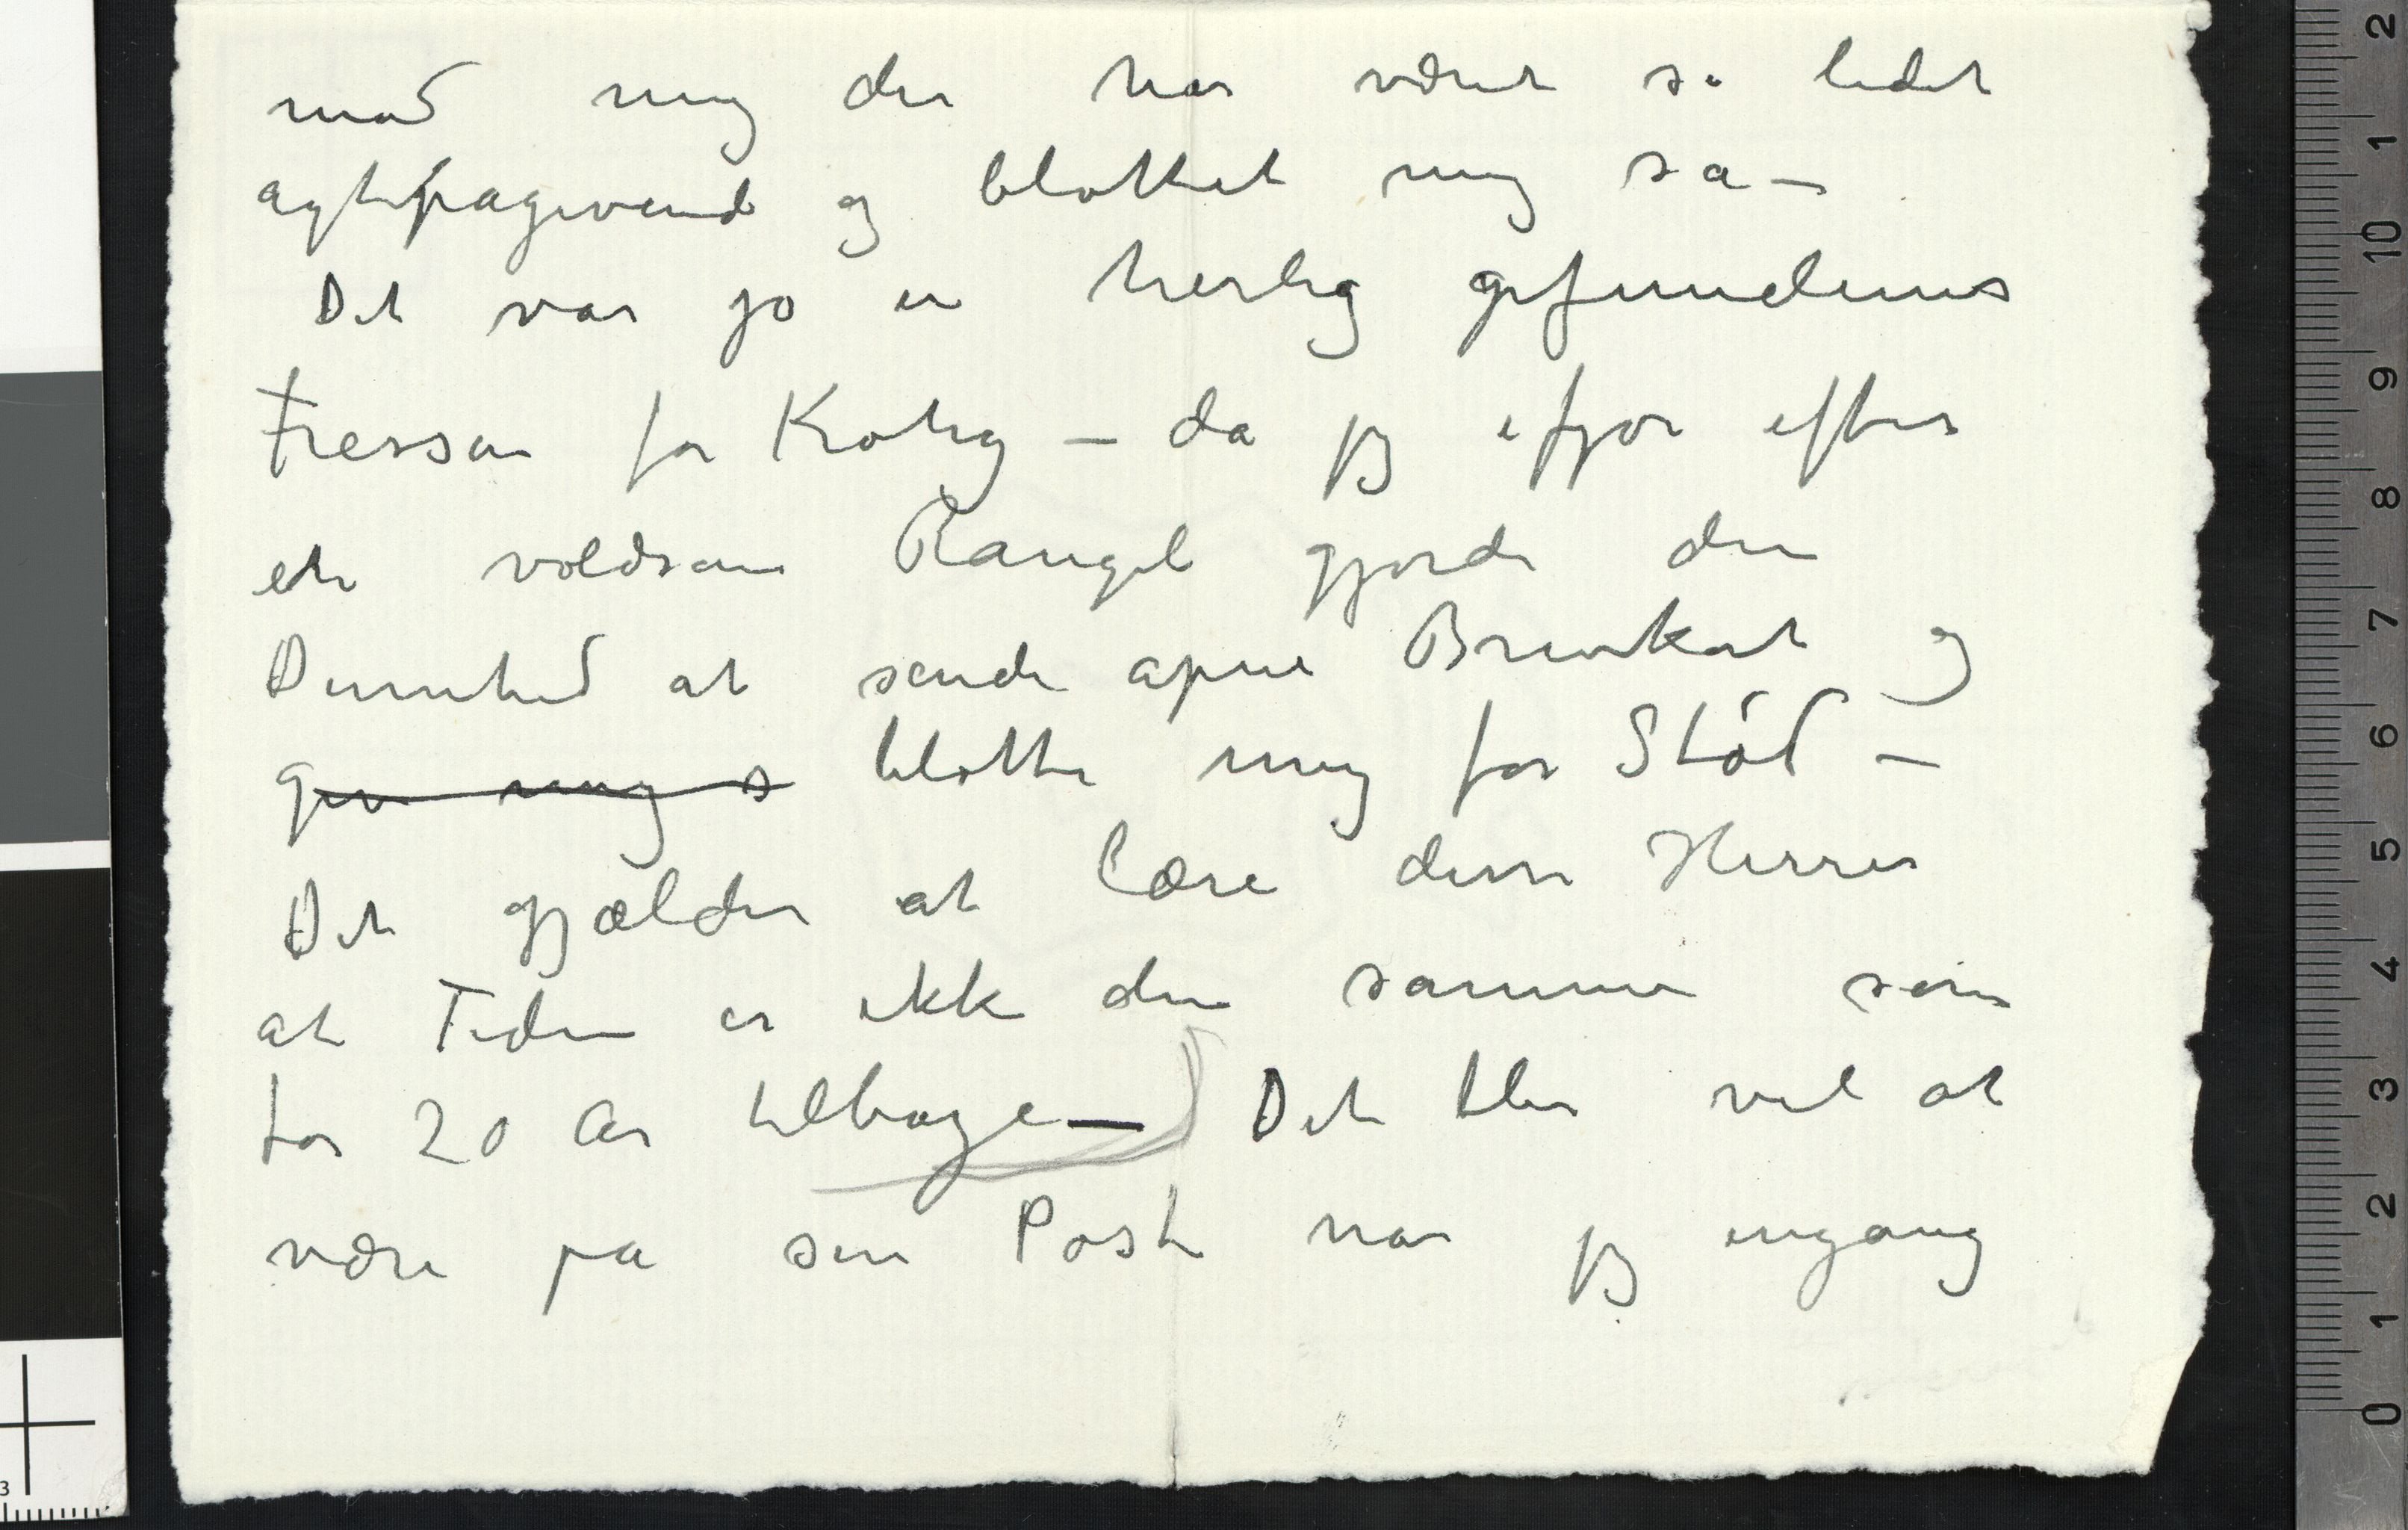 mod mig der har været så lidet
agtpågivende og blottet mig så –
Det var jo en herlig gefundenes
Fressen for Krohg – da jeg ifjor efter
en voldsom Rangel gjorde den
Dumhed at sende åpne Brevkort og
give mig s blotte mig for Stød –
Det gjælder at lære disse Herrer
at Tiden er ikke den samme som
for 20 År tilbage — Det blir vel at
være på sin Post når jeg engang